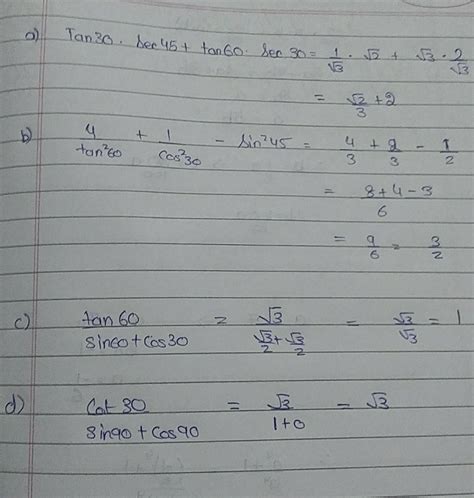 a) Tan30 . Sec45 + tan60 . Sec 30 = 1/√3 . √2 + √3 . 2/√3
= √2/3 + 2
b) 4/tan²60 + 1/cos²30 - sin²45 = 4/3 + 2/3 - 1/2
= 8+4-3/6
= 9/6 = 3/2
c) tan60/sin60+cos30 = √3/√3/2+√3/2 = √3/√3 = 1
d) Cot 30/sin90+cos90 = √3/1+0 = √3